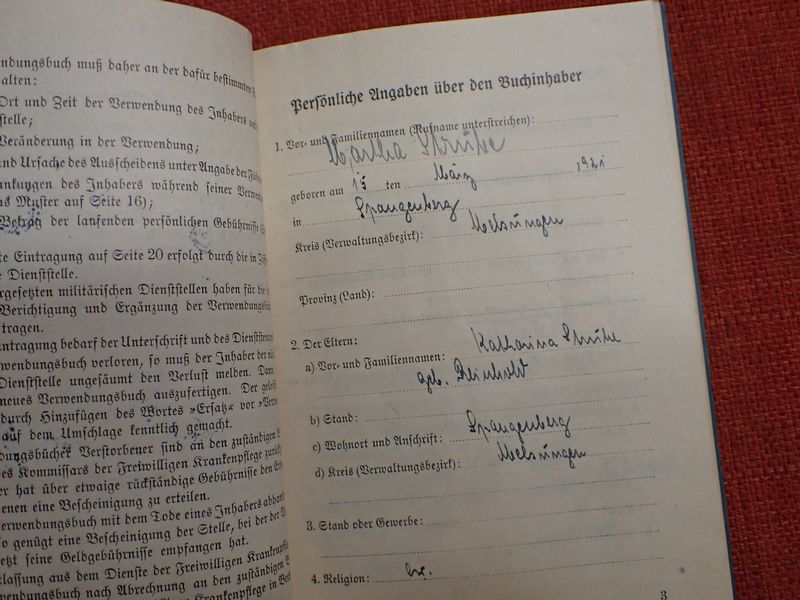 ndungsbuch muß daher an der dafür bestimmten
alten:
Ort und Zeit der Verwendung des Inhabers
stelle;
Veränderung in der Verwendung;
und Ursache des Ausscheidens unter Angabe der
ankungen des Inhabers während seiner Verwen
as Muster auf Seite 16);
Betrag der laufenden persönlichen Gebührnisse
te Eintragung auf Seite 20 erfolgt durch die in
Dienststelle.
rgesetzten militärischen Dienststellen haben für die
Berichtigung und Ergänzung der Verwendungsb
tragen.
ntragung bedarf der Unterschrift und des Dienststemp
wendungsbuch verloren, so muß der Inhaber der
Dienststelle ungesäumt den Verlust melden. Dann
neues Verwendungsbuch auszufertigen. Der
durch Hinzufügen des Wortes »Ersatz« vor »Verw
auf dem Umschlage kenntlich gemacht.
dungsbücher Verstorbener sind an den zuständigen
es Kommissars der Freiwilligen Krankenpflege
er hat über etwaige rückständige Gebührnisse den
enen eine Bescheinigung zu erteilen.
erwendungsbuch mit dem Tode eines Inhabers
o genügt eine Bescheinigung der Stelle, bei der der
etzt seine Geldgebührnisse empfangen hat.
tlassung aus dem Dienste der Freiwilligen Krankenpfl
wendungsbuch nach Abrechnung an den zuständigen
der Freiwilligen Krankenpflege in
Persönliche Angaben über den Buchinhaber
1. Vor- und Familiennamen (Rufname unterstreichen):
Martha Strube
geboren am 15 ten März 1921
in Spangenberg
Kreis (Verwaltungsbezirk): Melsungen
Provinz (Land):
2. Der Eltern:
a) Vor- und Familiennamen: Katharina Strube
geb. Reinhold
b) Stand:
c) Wohnort und Anschrift: Spangenberg
d) Kreis (Verwaltungsbezirk): Melsungen
3. Stand oder Gewerbe:
4. Religion: ev.
3